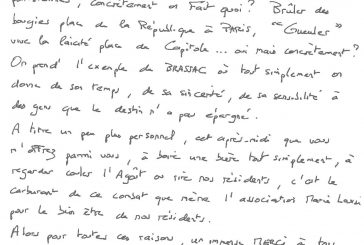 concrètement on fait quoi ? Brûler des
bougies place de la République à PARIS, "Gueuler"
vive la laïcité place du Capitole... oui mais concrètement ?
On prend l'exemple du BRASSAC où tout simplement on
donne de son temps, de sa sincérité, de sa sensibilité à
des gens que le destin n'a pas épargné.
A titre un peu plus personnel, cet après-midi que vous
m'offrez parmi vous, à boire une bière tout simplement, à
regarder couler l'Agoût ou rire nos résidents, c'est le
carburant de ce combat que mène l'association Marie Louise
pour le bien être de nos résidents.
Alors pour toutes ces raisons, un immense MERCI à tous